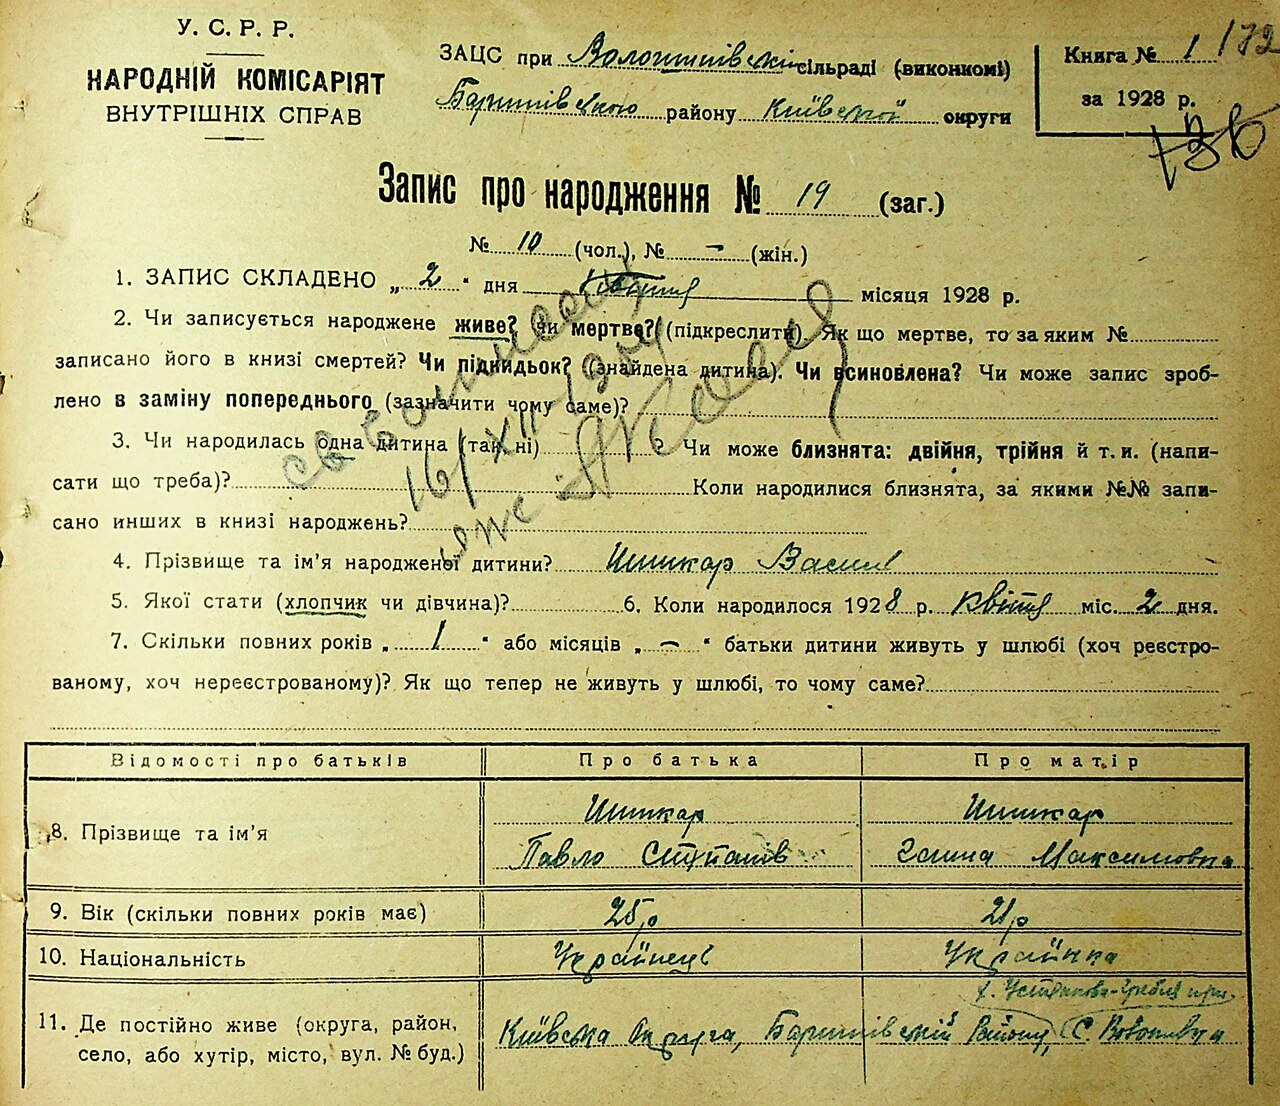 У. С. Р. Р.
НАРОДНІЙ КОМІСАРІЯТ
ВНУТРІШНІХ СПРАВ
ЗАЦС при Волошинівській сільраді (виконкомі)
Баришівського району Київської округи
Книга № 1 172
за 1928 р.
Запис про народження № 19 (заг.)
№ 10 (чол.), № – (жін.)
1. ЗАПИС СКЛАДЕНО „ 2 “ дня квітня місяця 1928 р.
2. Чи записується народжене живе? чи мертве? (підкреслити). Як що мертве, то за яким №
записано його в книзі смертей? Чи підкидьок? (знайдена дитина). Чи всиновлена? Чи може запис зроб-
лено в заміну попереднього (зазначити чому саме)?
16/XII-
3. Чи народилась одна дитина (так, ні) ? Чи може близнята: двійня, трійня й т. и. (напи-
сати що треба)? Коли народилися близнята, за якими №№ запи-
сано инших в книзі народжень?
4. Прізвище та ім’я народженої дитини? Шишкар Васил
5. Якої стати (хлопчик чи дівчина)? 6. Коли народилося 1928 р. квітня міс. 2 дня.
7. Скільки повних років „ 1 “ або місяців „ – “ батьки дитини живуть у шлюбі (хоч реєстро-
ваному, хоч нереєстрованому)? Як що тепер не живуть у шлюбі, то чому саме?
Відомості про батьків Про батька Про матір
8. Прізвище та ім’я
Шишкар Шишкар
Павло Степанов Галина Максимовна
9. Вік (скільки повних років має) 25 р 21 р
10. Національність Українець Українка
11. Де постійно живе (округа, район,
село, або хутір, місто, вул. № буд.)
Київська Округа, Баришівський Району, С.